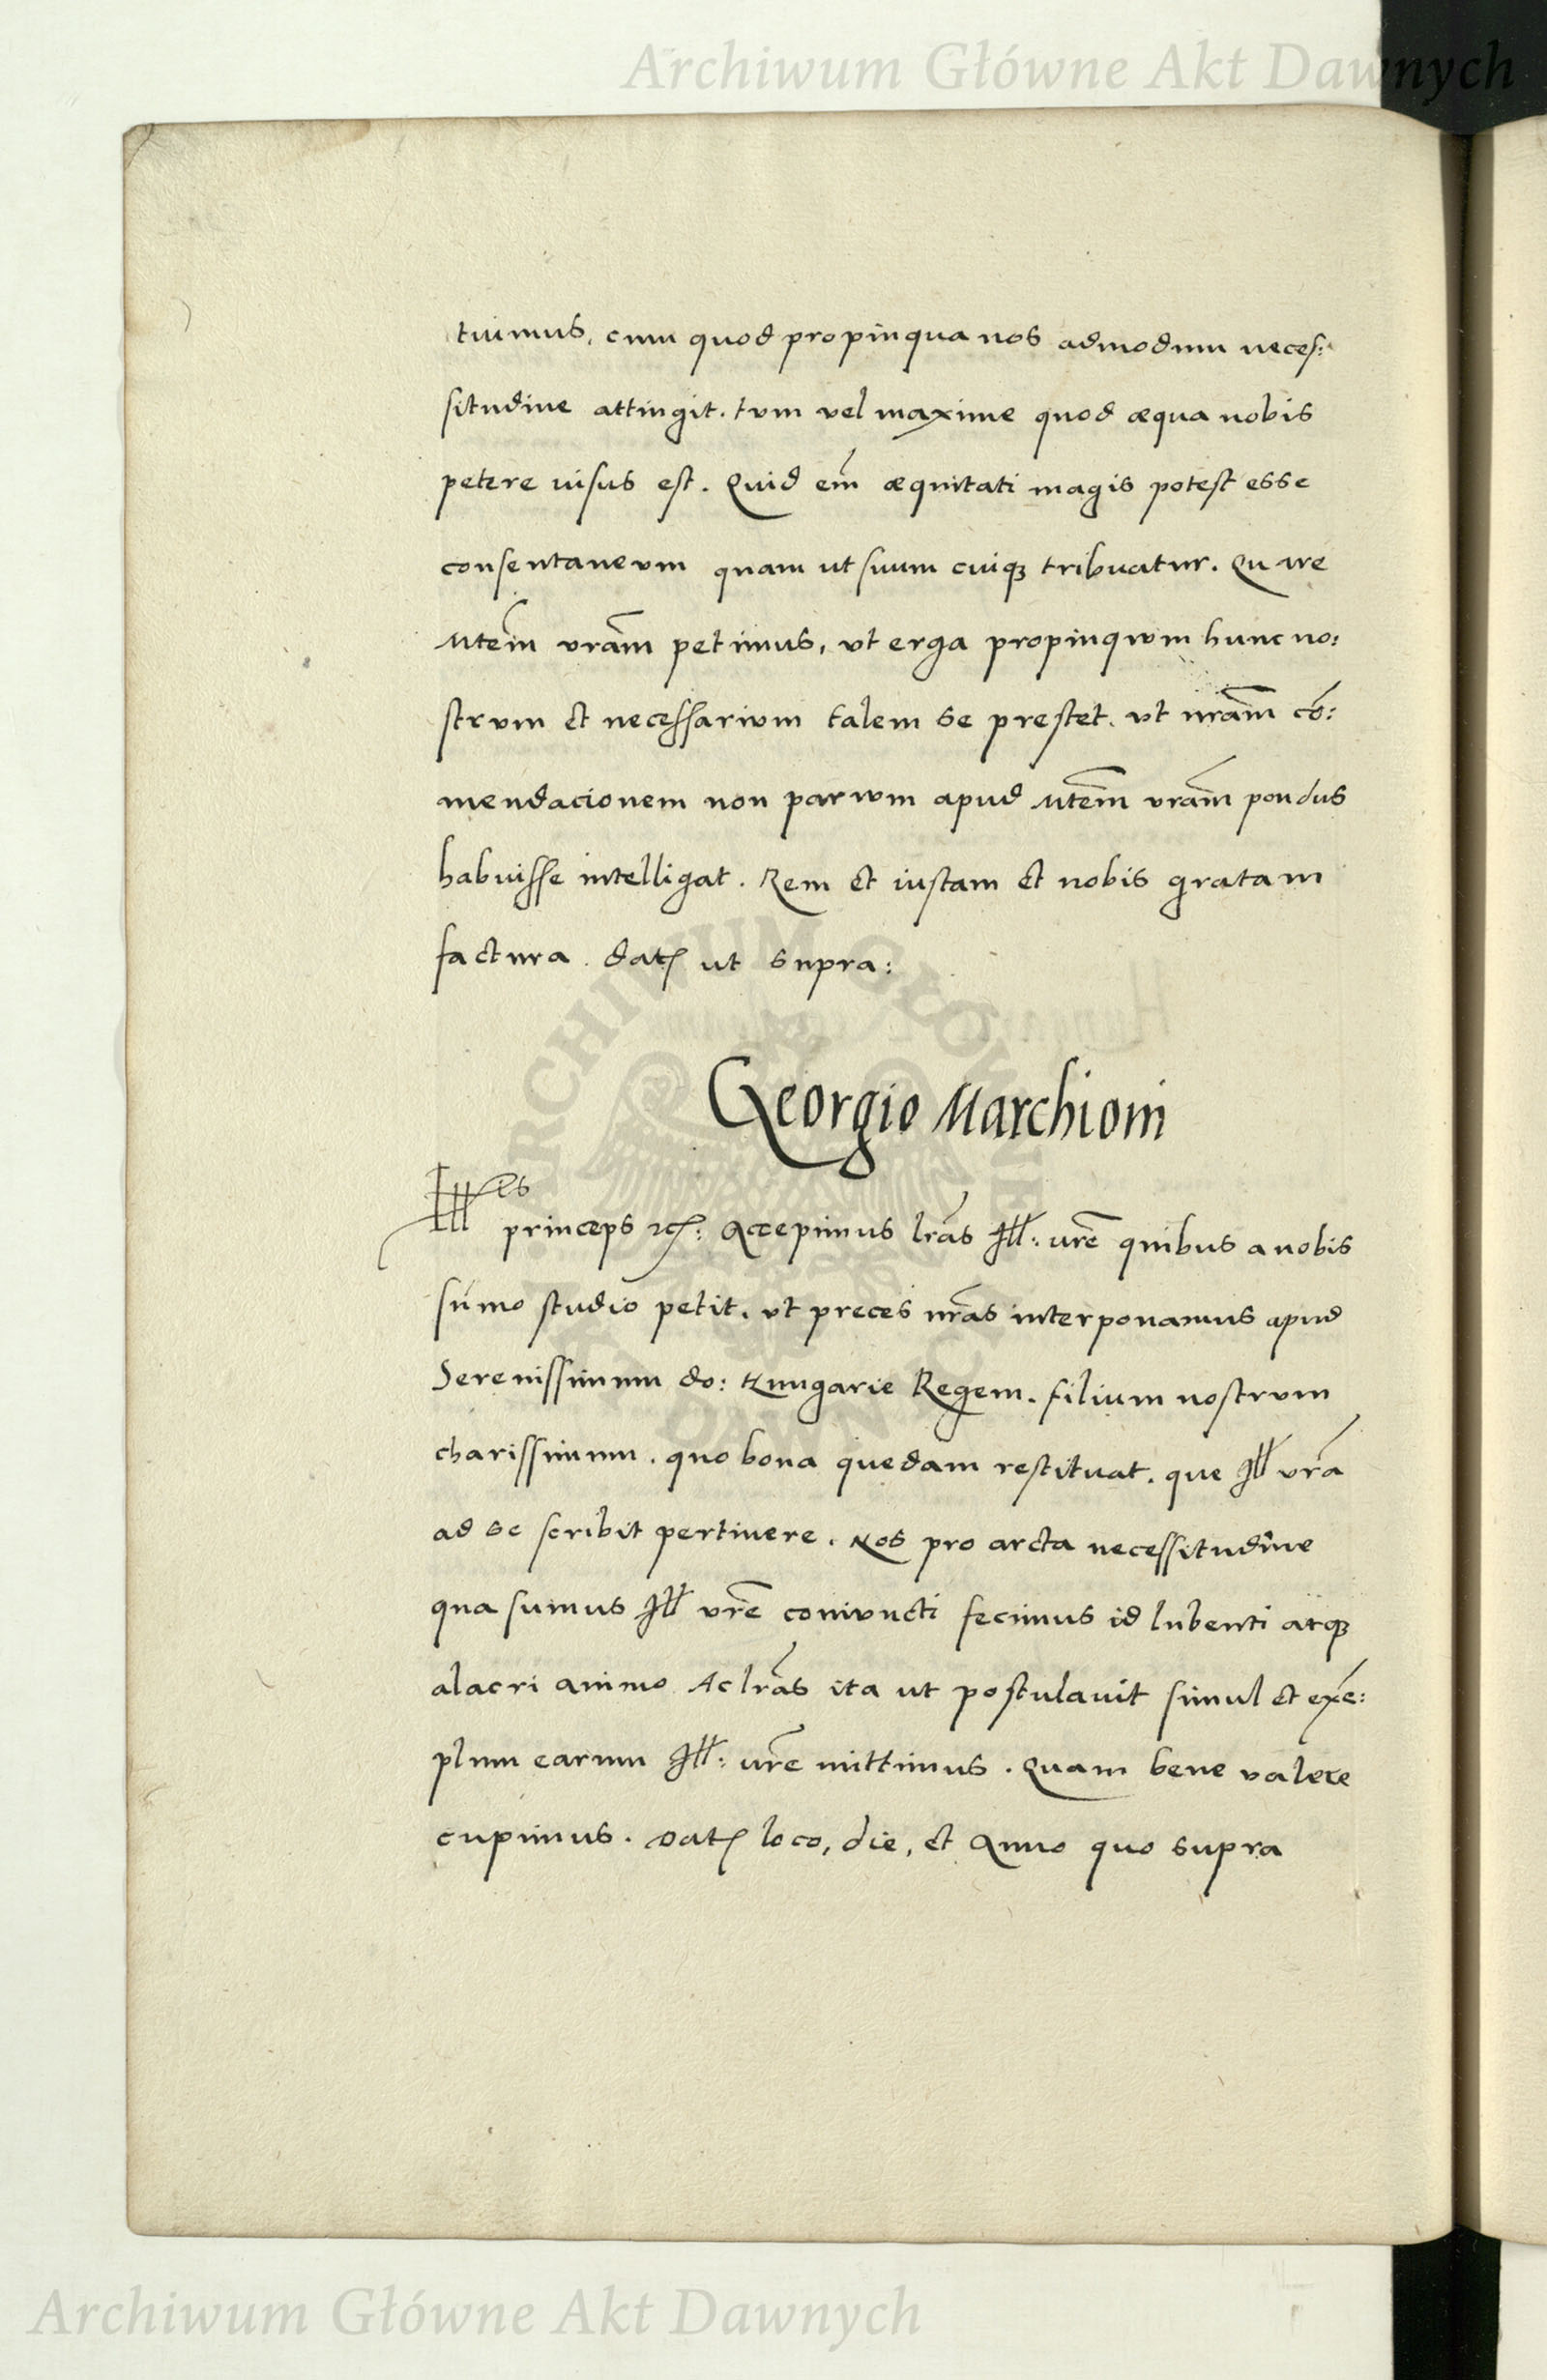 Archiwum Główne Akt Dawnych
tuimus, cum quod propinqua nos admodum neces:
situdine attingit. tum vel maxime quod æqua nobis
petere uisus est. Quid em̄ æquitati magis potest esse
consentaneum quam ut suum cuiqȝ tribuatur. Quare
Mtem̄ vrām petimus, ut erga propinquum hunc no:
strum et necessarium talem se prestet. ut nrām cō:
mendacionem non parvum apud Mtem̄ vrām pondus
habuisse intelligat. Rem et iustam et nobis gratam
factura. dat̄ ut supra:
Georgio Marchioni
Illes
princeps etc̄: Accepimus lrās Ill: vrē quibus a nobis
sūmo studio petit. ut preces nrās interponamus apud
Serenissimum do: Hungarie Regem. filium nostrum
charissimum. quo bona quedam restituat. que Ill vrā
ad se scribit pertinere. Nos pro arcta necessitudine
qua sumus Ill vrē coniuncti fecimus id lubenti atqȝ
alacri animo Ac lrās ita ut postulauit simul et exē:
plum earum Ill: vrē mittimus. Quam bene valere
cupimus. Dat̄ loco, die, et Anno quo supra
ARCHIWUM GŁÓWNE AKT DAWNYCH
Archiwum Główne Akt Dawnych